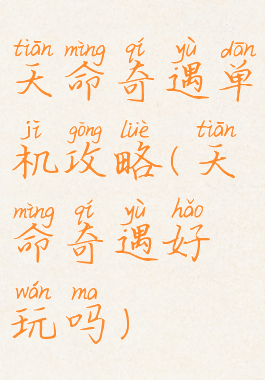 tiān mìng qí yù dān
天命奇遇单
jī gōng lüè tiān
机攻略(天
mìng qí yù hǎo
命奇遇好
wán ma
玩吗)